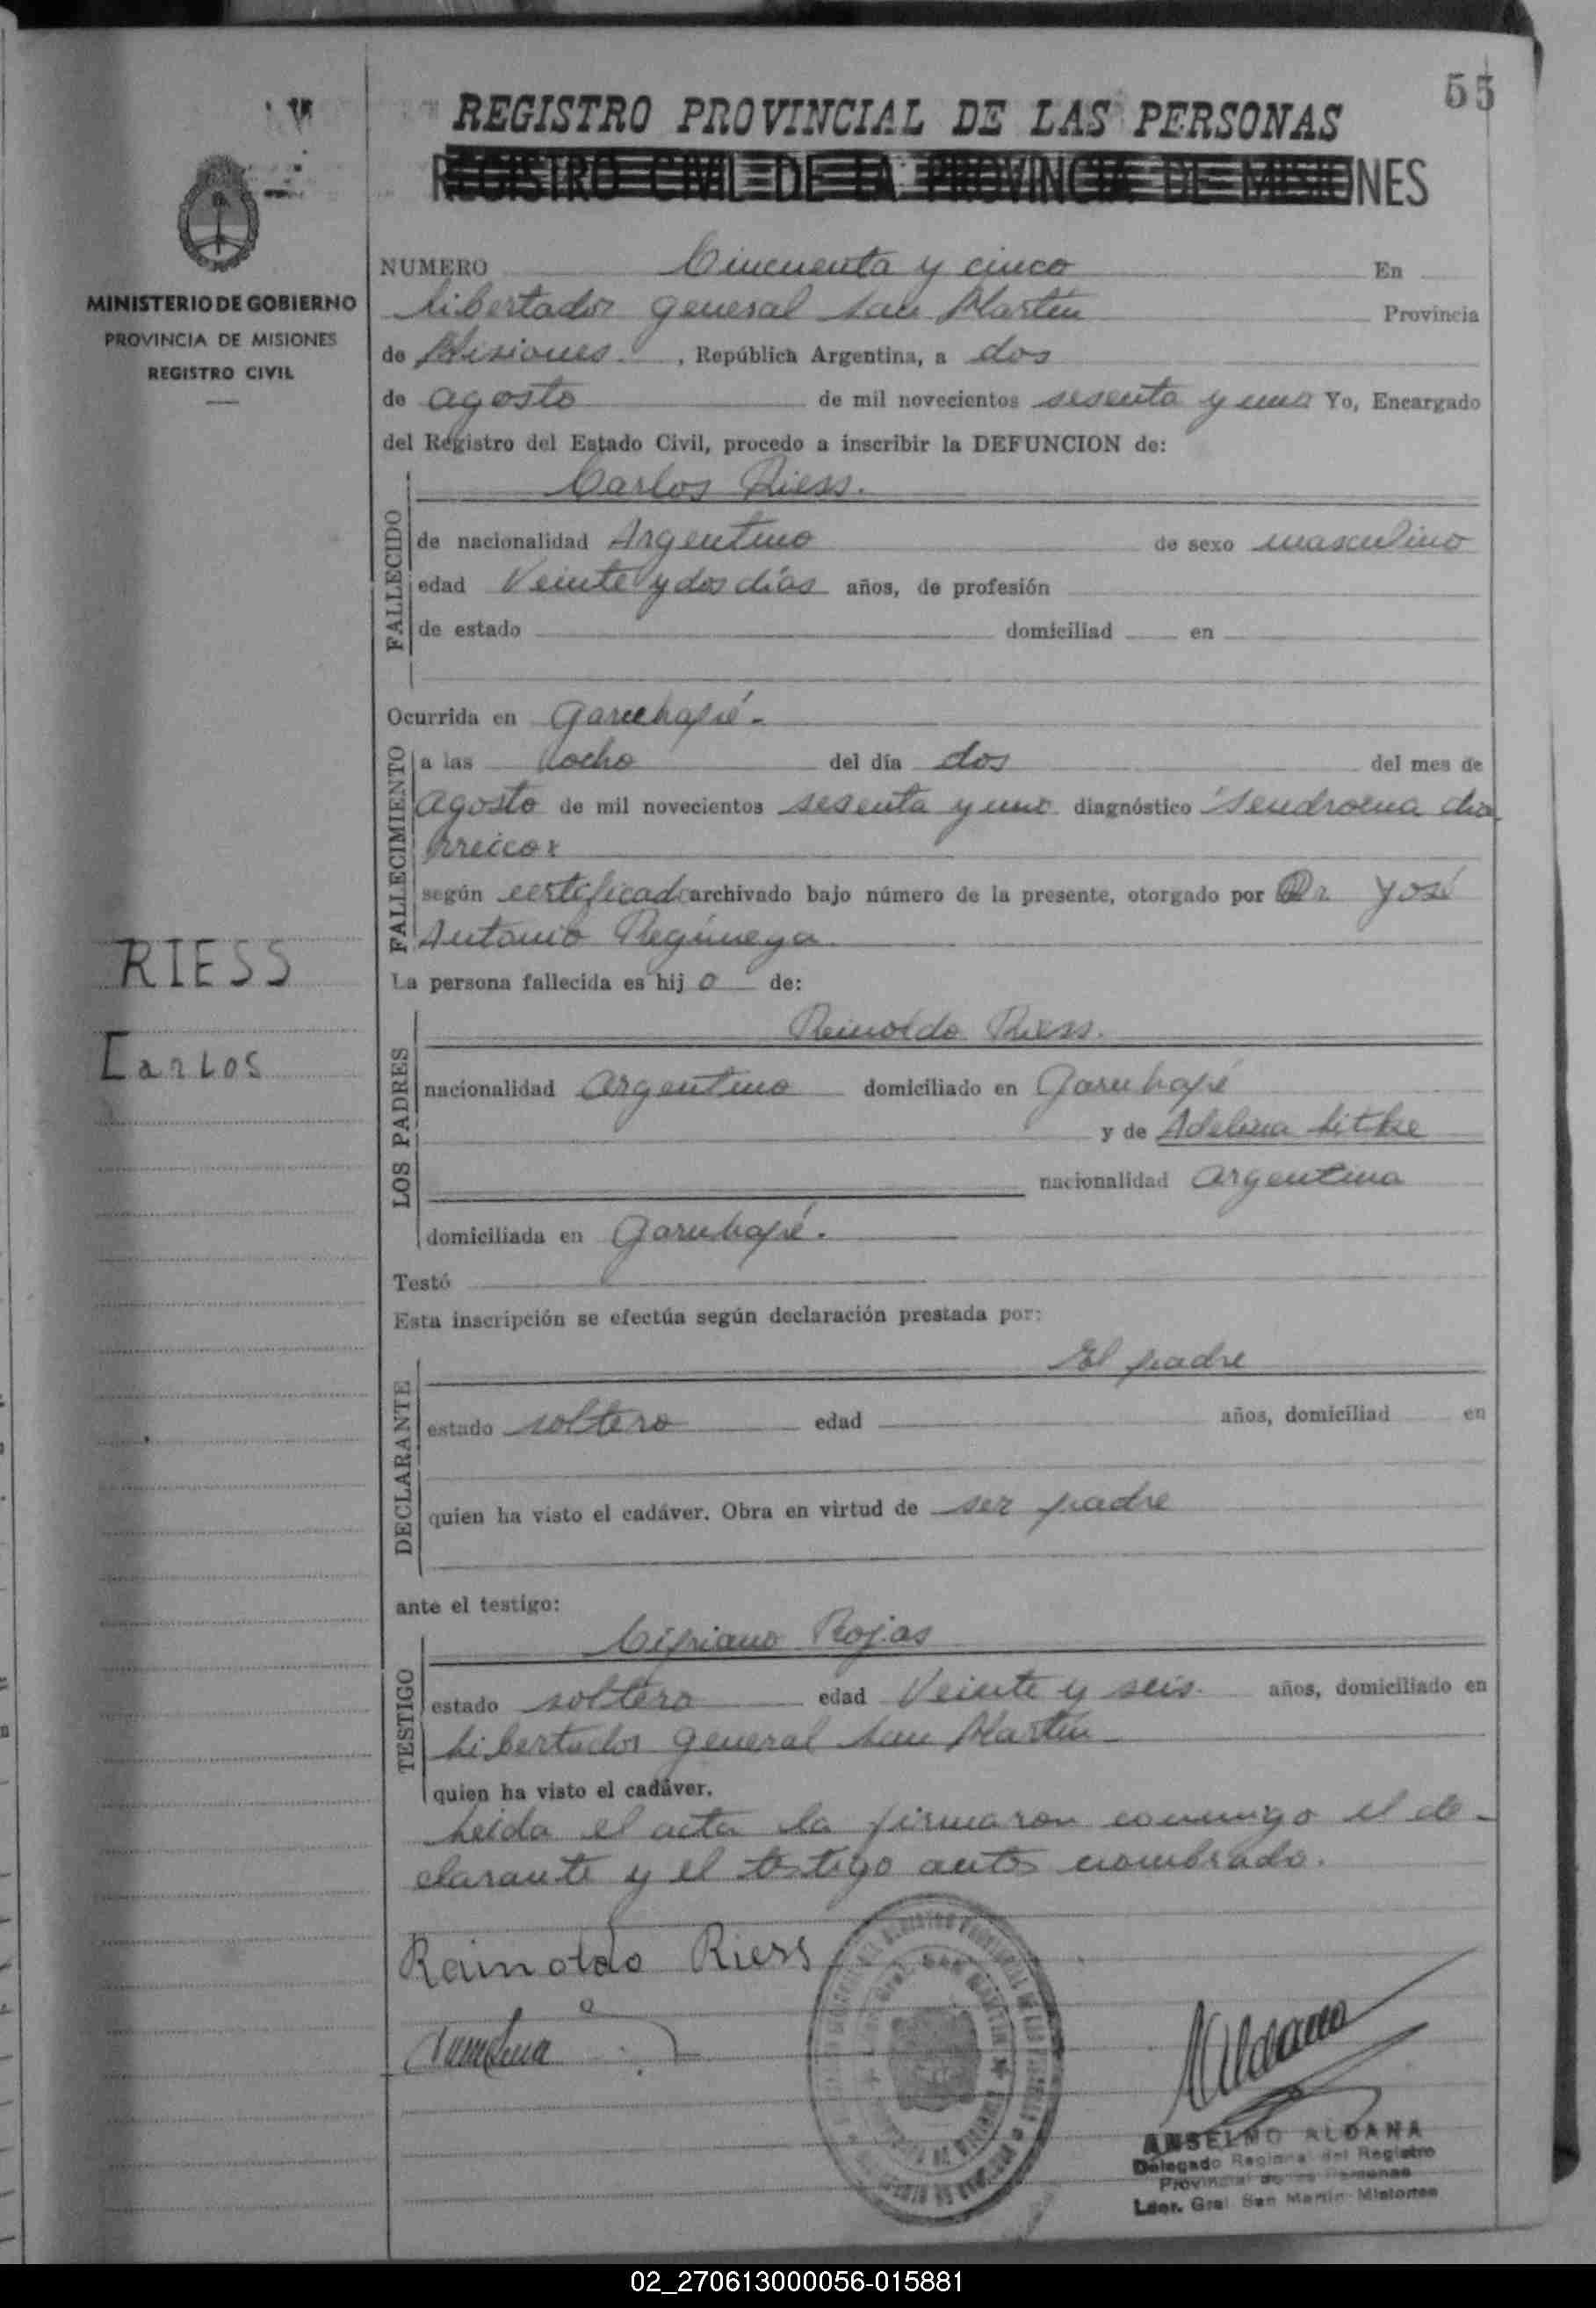 55
REGISTRO PROVINCIAL DE LAS PERSONAS
REGISTRO CIVIL DE LA PROVINCIA DE MISIONES
MINISTERIO DE GOBIERNO
PROVINCIA DE MISIONES
REGISTRO CIVIL
NUMERO Cincuenta y cinco En
Libertador General San Martín Provincia
de Misiones , República Argentina, a dos
de agosto de mil novecientos sesenta y uno Yo, Encargado
del Registro del Estado Civil, procedo a inscribir la DEFUNCION de:
FALLECIDO
Carlos Riess.
de nacionalidad Argentino de sexo masculino
edad Veinte y dos días años, de profesión
de estado domiciliad en
Ocurrida en Garuhapé.-
FALLECIMIENTO
a las ocho del día dos del mes de
agosto de mil novecientos sesenta y uno diagnóstico Sendroma dia
rreico
según certificado archivado bajo número de la presente, otorgado por Dr José
Antonio
RIESS
Carlos
La persona fallecida es hij o de:
LOS PADRES
Reinoldo Riess.
nacionalidad argentino domiciliado en Garuhapé
y de Adelina Litke
nacionalidad argentina
domiciliada en Garuhapé.
Testó
Esta inscripción se efectúa según declaración prestada por:
DECLARANTE
El padre
estado soltero edad años, domiciliad en
quien ha visto el cadáver. Obra en virtud de ser padre
ante el testigo:
TESTIGO
Cipriano Rojas
estado soltero edad Veinte y seis. años, domiciliado en
Libertador General San Martín
quien ha visto el cadáver.
Leida el acta la firmaron conmigo el de-
clarante y el testigo antes nombrado.
Rainoldo Riess
ANSELMO ALDANA
Delegado Regional del Registro
Provincial de las Personas
Lder. Gral San Martin Misiones
02_270613000056-015881